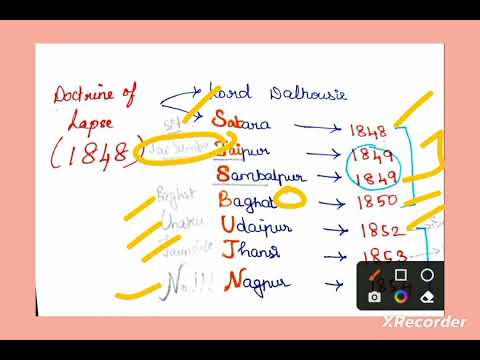 Doctrine of Lapse (1848)
Lord Dalhousie
Sat Satara → 1848
Jai Samba Jaipur → 1849
Sambalpur → 1849
Baghat Baghat → 1850
Udaipur → 1852
Jhansi → 1853
No!!! Nagpur → 1854
XRecorder